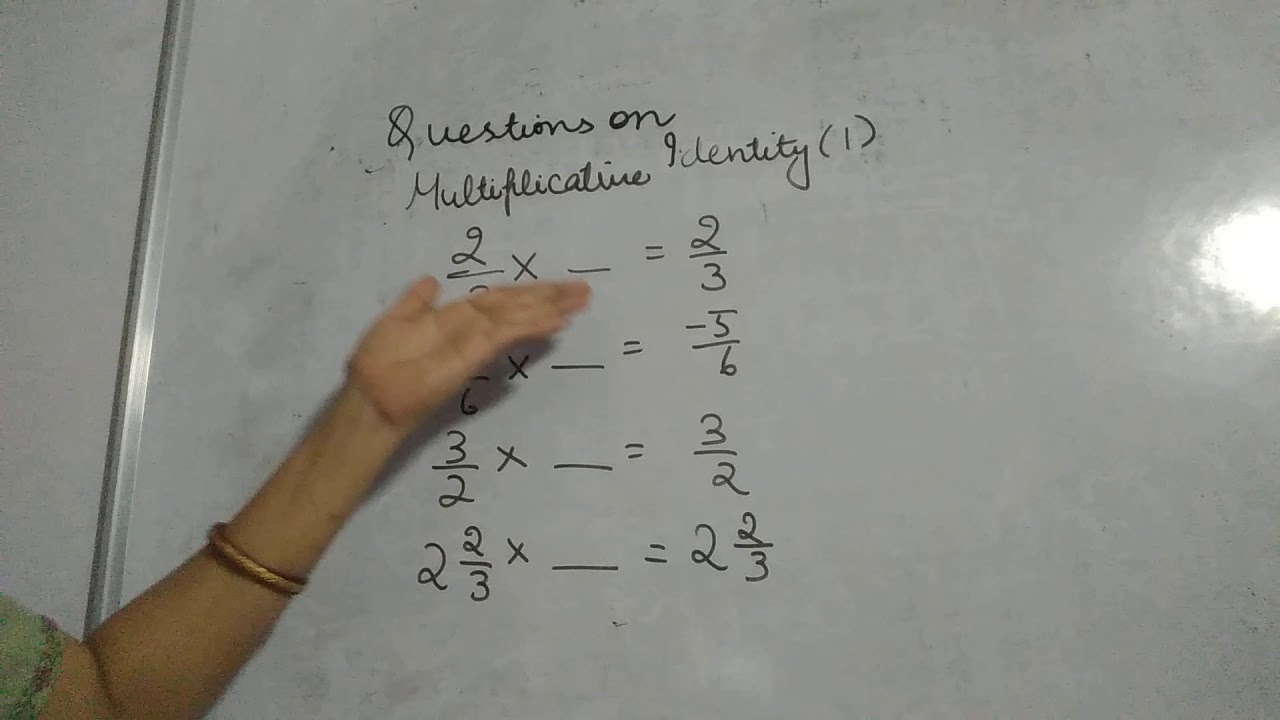 Questions on
Multiplicative Identity (1)
2/ × __ = 2/3
/6 × __ = -5/6
3/2 × __ = 3/2
2 2/3 × __ = 2 2/3